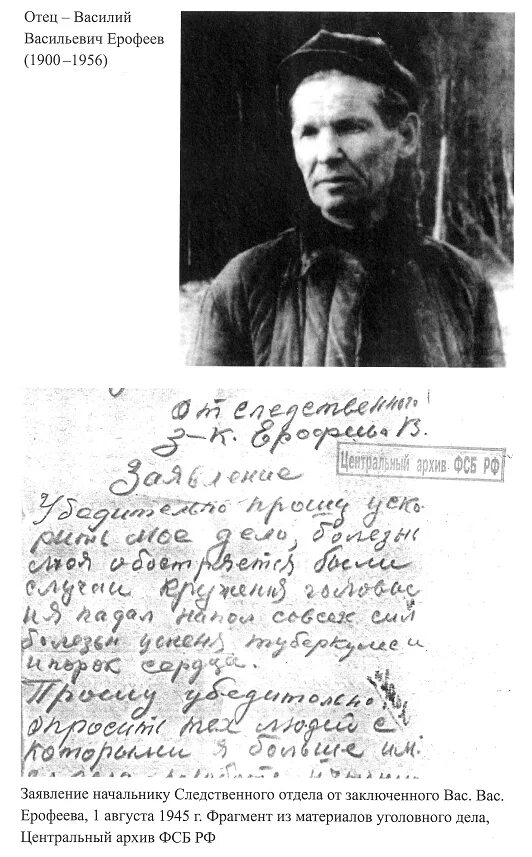 Отец – Василий
Васильевич Ерофеев
(1900–1956)
От следственного
з-к. Ерофеева В.
Центральный архив ФСБ РФ
Заявление
Убедительно прошу уско-
рить мое дело, болезнь
моя обостряется были
случаи кружения головы
и я падал на пол совсех сил
болезнь у меня туберкулез и
и порок сердца.
Прошу убедительно
опросить тех людей с
которыми я больше им
Заявление начальнику Следственного отдела от заключенного Вас. Вас.
Ерофеева, 1 августа 1945 г. Фрагмент из материалов уголовного дела,
Центральный архив ФСБ РФ